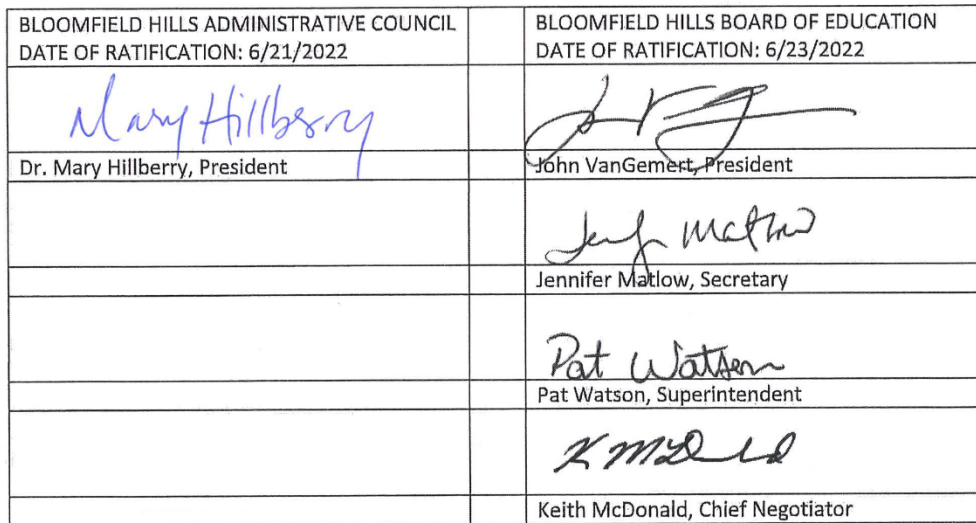 BLOOMFIELD HILLS ADMINISTRATIVE COUNCIL
DATE OF RATIFICATION: 6/21/2022
Mary Hillberry
Dr. Mary Hillberry, President
BLOOMFIELD HILLS BOARD OF EDUCATION
DATE OF RATIFICATION: 6/23/2022
John VanGemert, President
Matlow
Jennifer Matlow, Secretary
Pat Watson
Pat Watson, Superintendent
K McDonald
Keith McDonald, Chief Negotiator